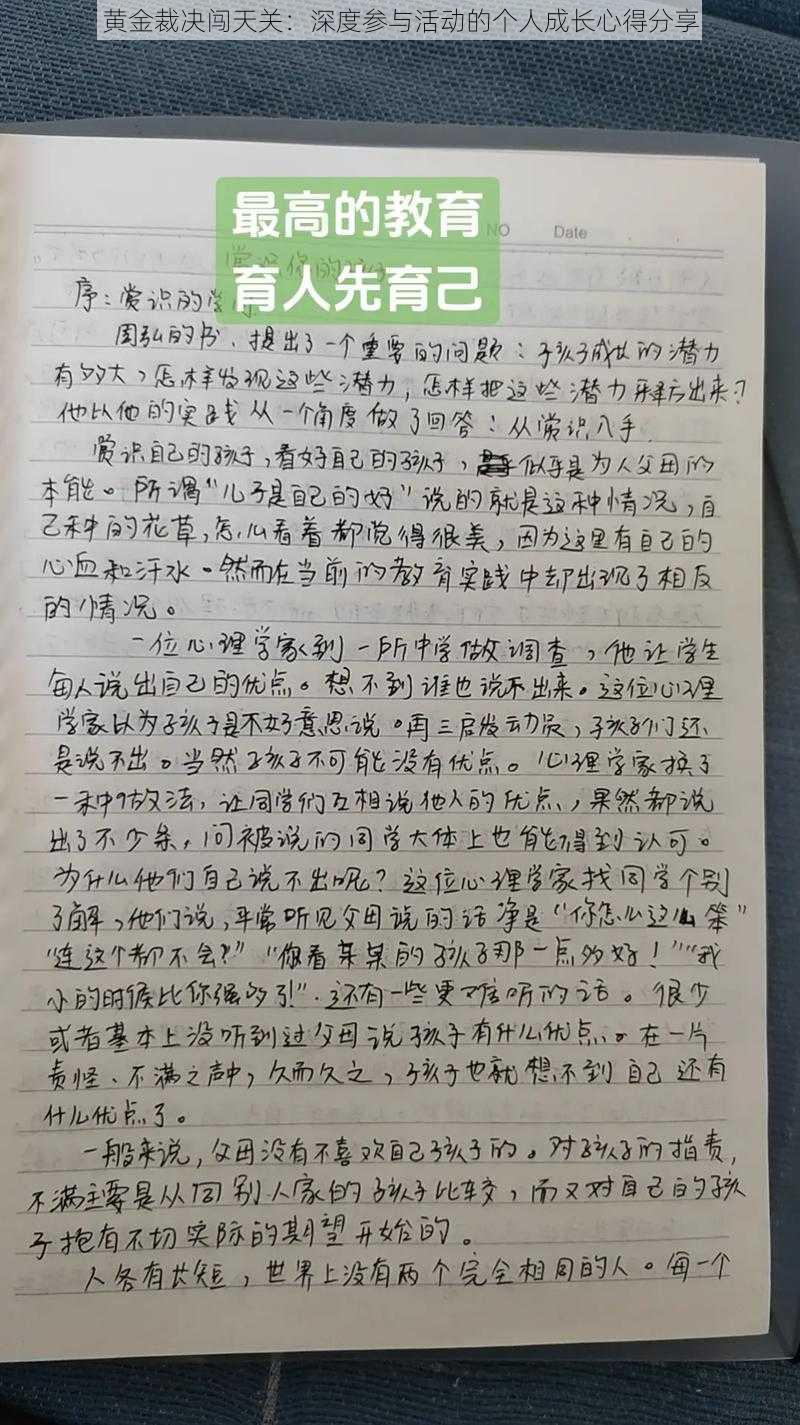 黄金裁决闯天关：深度参与活动的个人成长心得分享
最高的教育
育人先育己
NO Date
赏识你的孩子
序：赏识的学问
周弘的书、提出了一个重要的问题：孩子成长的潜力
有多大，怎样发现这些潜力，怎样把这些潜力释放出来？
他以他的实践从一个角度做了回答：从赏识入手.
赏识自己的孩子，看好自己的孩子，似乎是为人父母的
本能。所谓“儿子是自己的好”说的就是这种情况，自
己种的花草，怎么看着都觉得很美，因为这里有自己的
心血和汗水。然而在当前的教育实践中却出现了相反
的情况。
一位心理学家到一所中学做调查，他让学生
每人说出自己的优点。想不到谁也说不出来。这位心理
学家以为孩子是不好意思说。再三启发动员，孩子们还
是说不出。当然孩子不可能没有优点。心理学家换了
一种做法，让同学们互相说他人的优点，果然都说
出了不少条，问被说的同学大体上也能得到认可。
为什么他们自己说不出呢？这位心理学家找同学个别
了解，他们说，平常听见父母说的话净是“你怎么这么笨”
“连这个都不会？”“你看某某的孩子那一点多好！”“我
小的时候比你强多了！”.还有一些更难听的话。很少
或者基本上没听到过父母说孩子有什么优点。在一片
责怪、不满之声中，久而久之，孩子也就想不到自己还有
什么优点了。
一般来说，父母没有不喜欢自己孩子的。对孩子的指责，
不满主要是从同别人家的孩子比较，而又对自己的孩
子抱有不切实际的期望开始的。
人各有长短，世界上没有两个完全相同的人。每一个